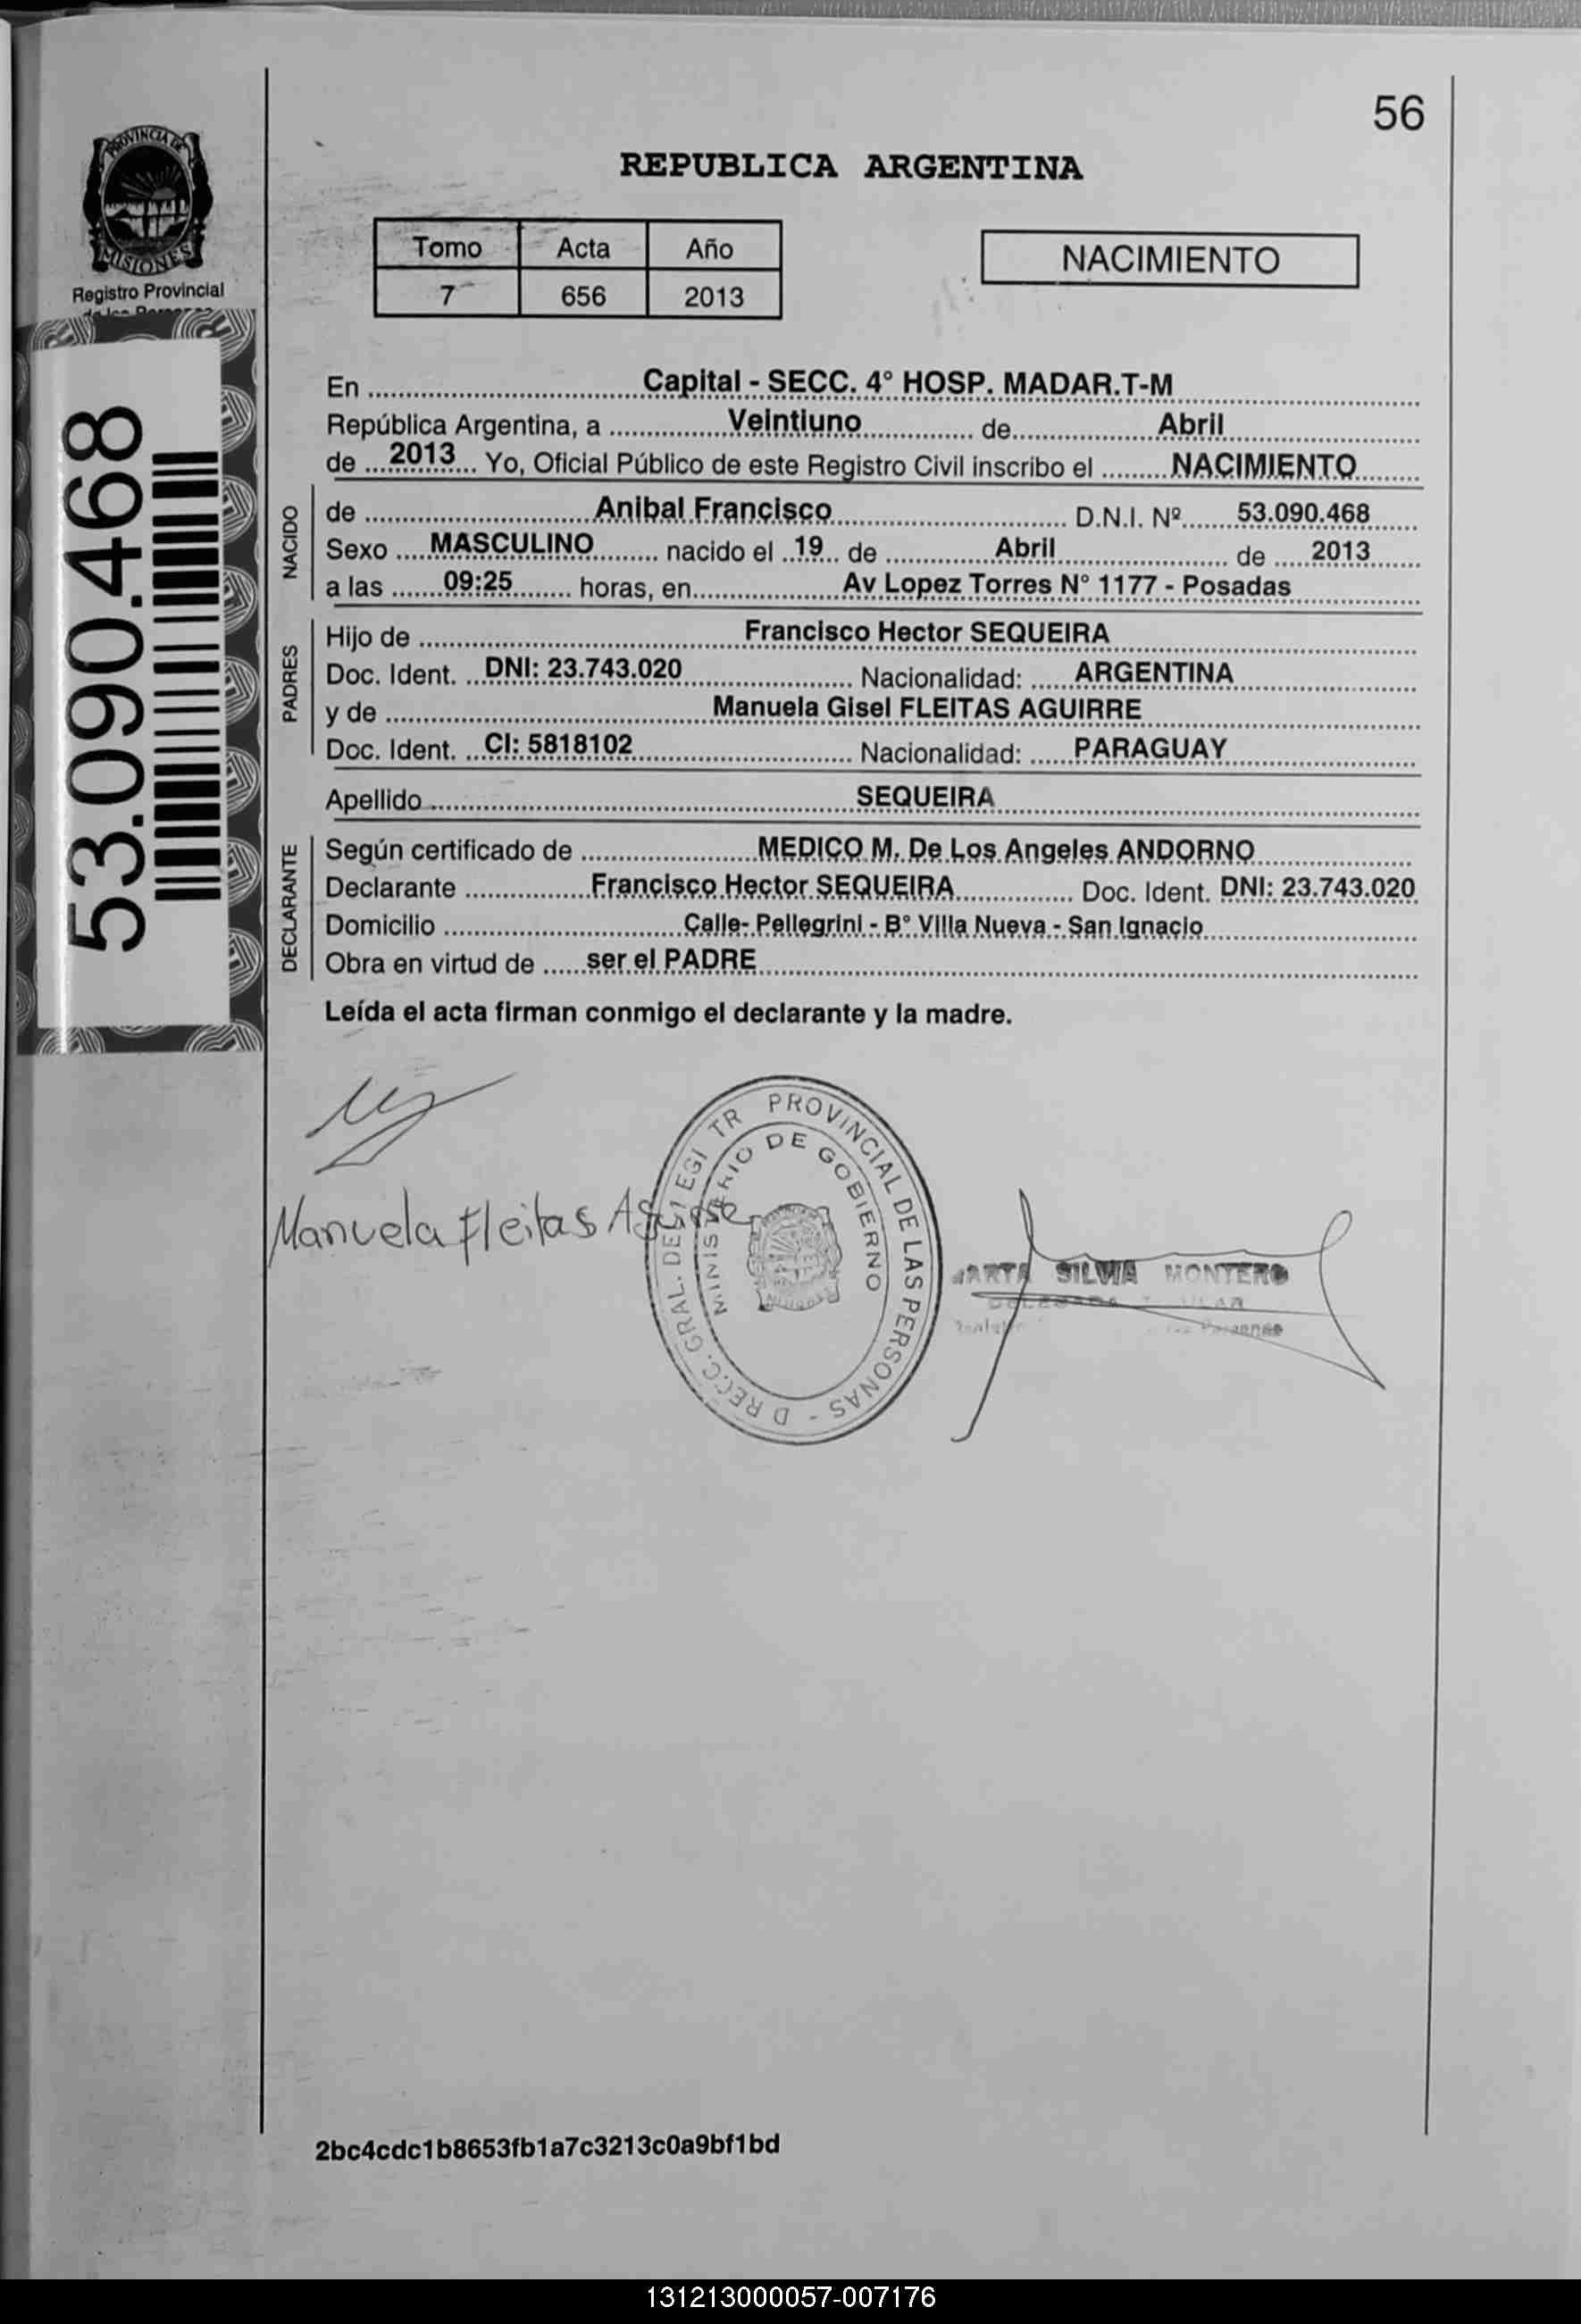 56
PROVINCIA DE
MISIONES
Registro Provincial
de las Personas
REPUBLICA ARGENTINA
Tomo Acta Año
7 656 2013
NACIMIENTO
53.090.468
En Capital - SECC. 4° HOSP. MADAR.T-M
República Argentina, a Veintiuno de Abril
de 2013 Yo, Oficial Público de este Registro Civil inscribo el NACIMIENTO
NACIDO
de Anibal Francisco D.N.I. Nº 53.090.468
Sexo MASCULINO nacido el 19 de Abril de 2013
a las 09:25 horas, en Av Lopez Torres N° 1177 - Posadas
PADRES
Hijo de Francisco Hector SEQUEIRA
Doc. Ident. DNI: 23.743.020 Nacionalidad: ARGENTINA
y de Manuela Gisel FLEITAS AGUIRRE
Doc. Ident. CI: 5818102 Nacionalidad: PARAGUAY
Apellido SEQUEIRA
DECLARANTE
Según certificado de MEDICO M. De Los Angeles ANDORNO
Declarante Francisco Hector SEQUEIRA Doc. Ident. DNI: 23.743.020
Domicilio Calle- Pellegrini - B° Villa Nueva - San Ignacio
Obra en virtud de ser el PADRE
Leída el acta firman conmigo el declarante y la madre.
Manuela Fleitas Aguirre
D RECC. GRAL. DEL EGI TR PROVINCIAL DE LAS PERSONAS -
MINISTERIO DE GOBIERNO
ARTA SILVIA MONTERO
Personas
2bc4cdc1b8653fb1a7c3213c0a9bf1bd
131213000057-007176